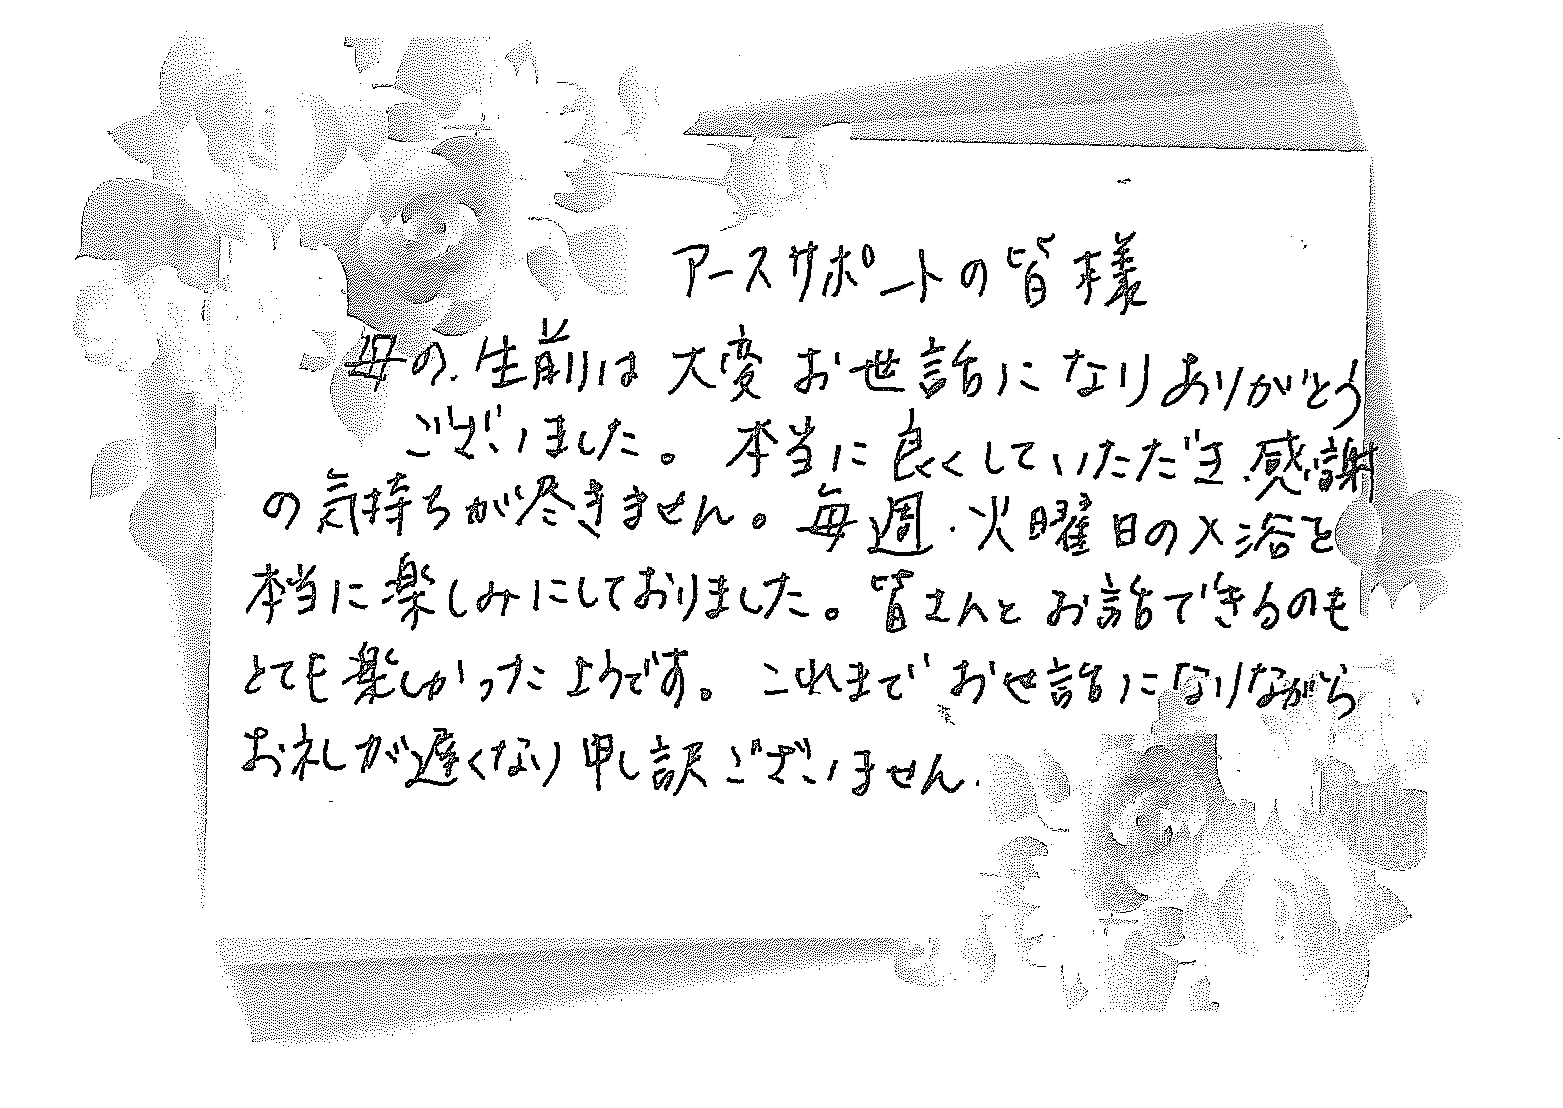 アースサポートの皆様
母の生前は大変お世話になりありがとう
ございました。本当に良くしていただき感謝
の気持ちが尽きません。毎週・火曜日の入浴を
本当に楽しみにしておりました。皆さんとお話できるのも
とても楽しかったようです。これまでお世話になりながら
お礼が遅くなり申し訳ございません.